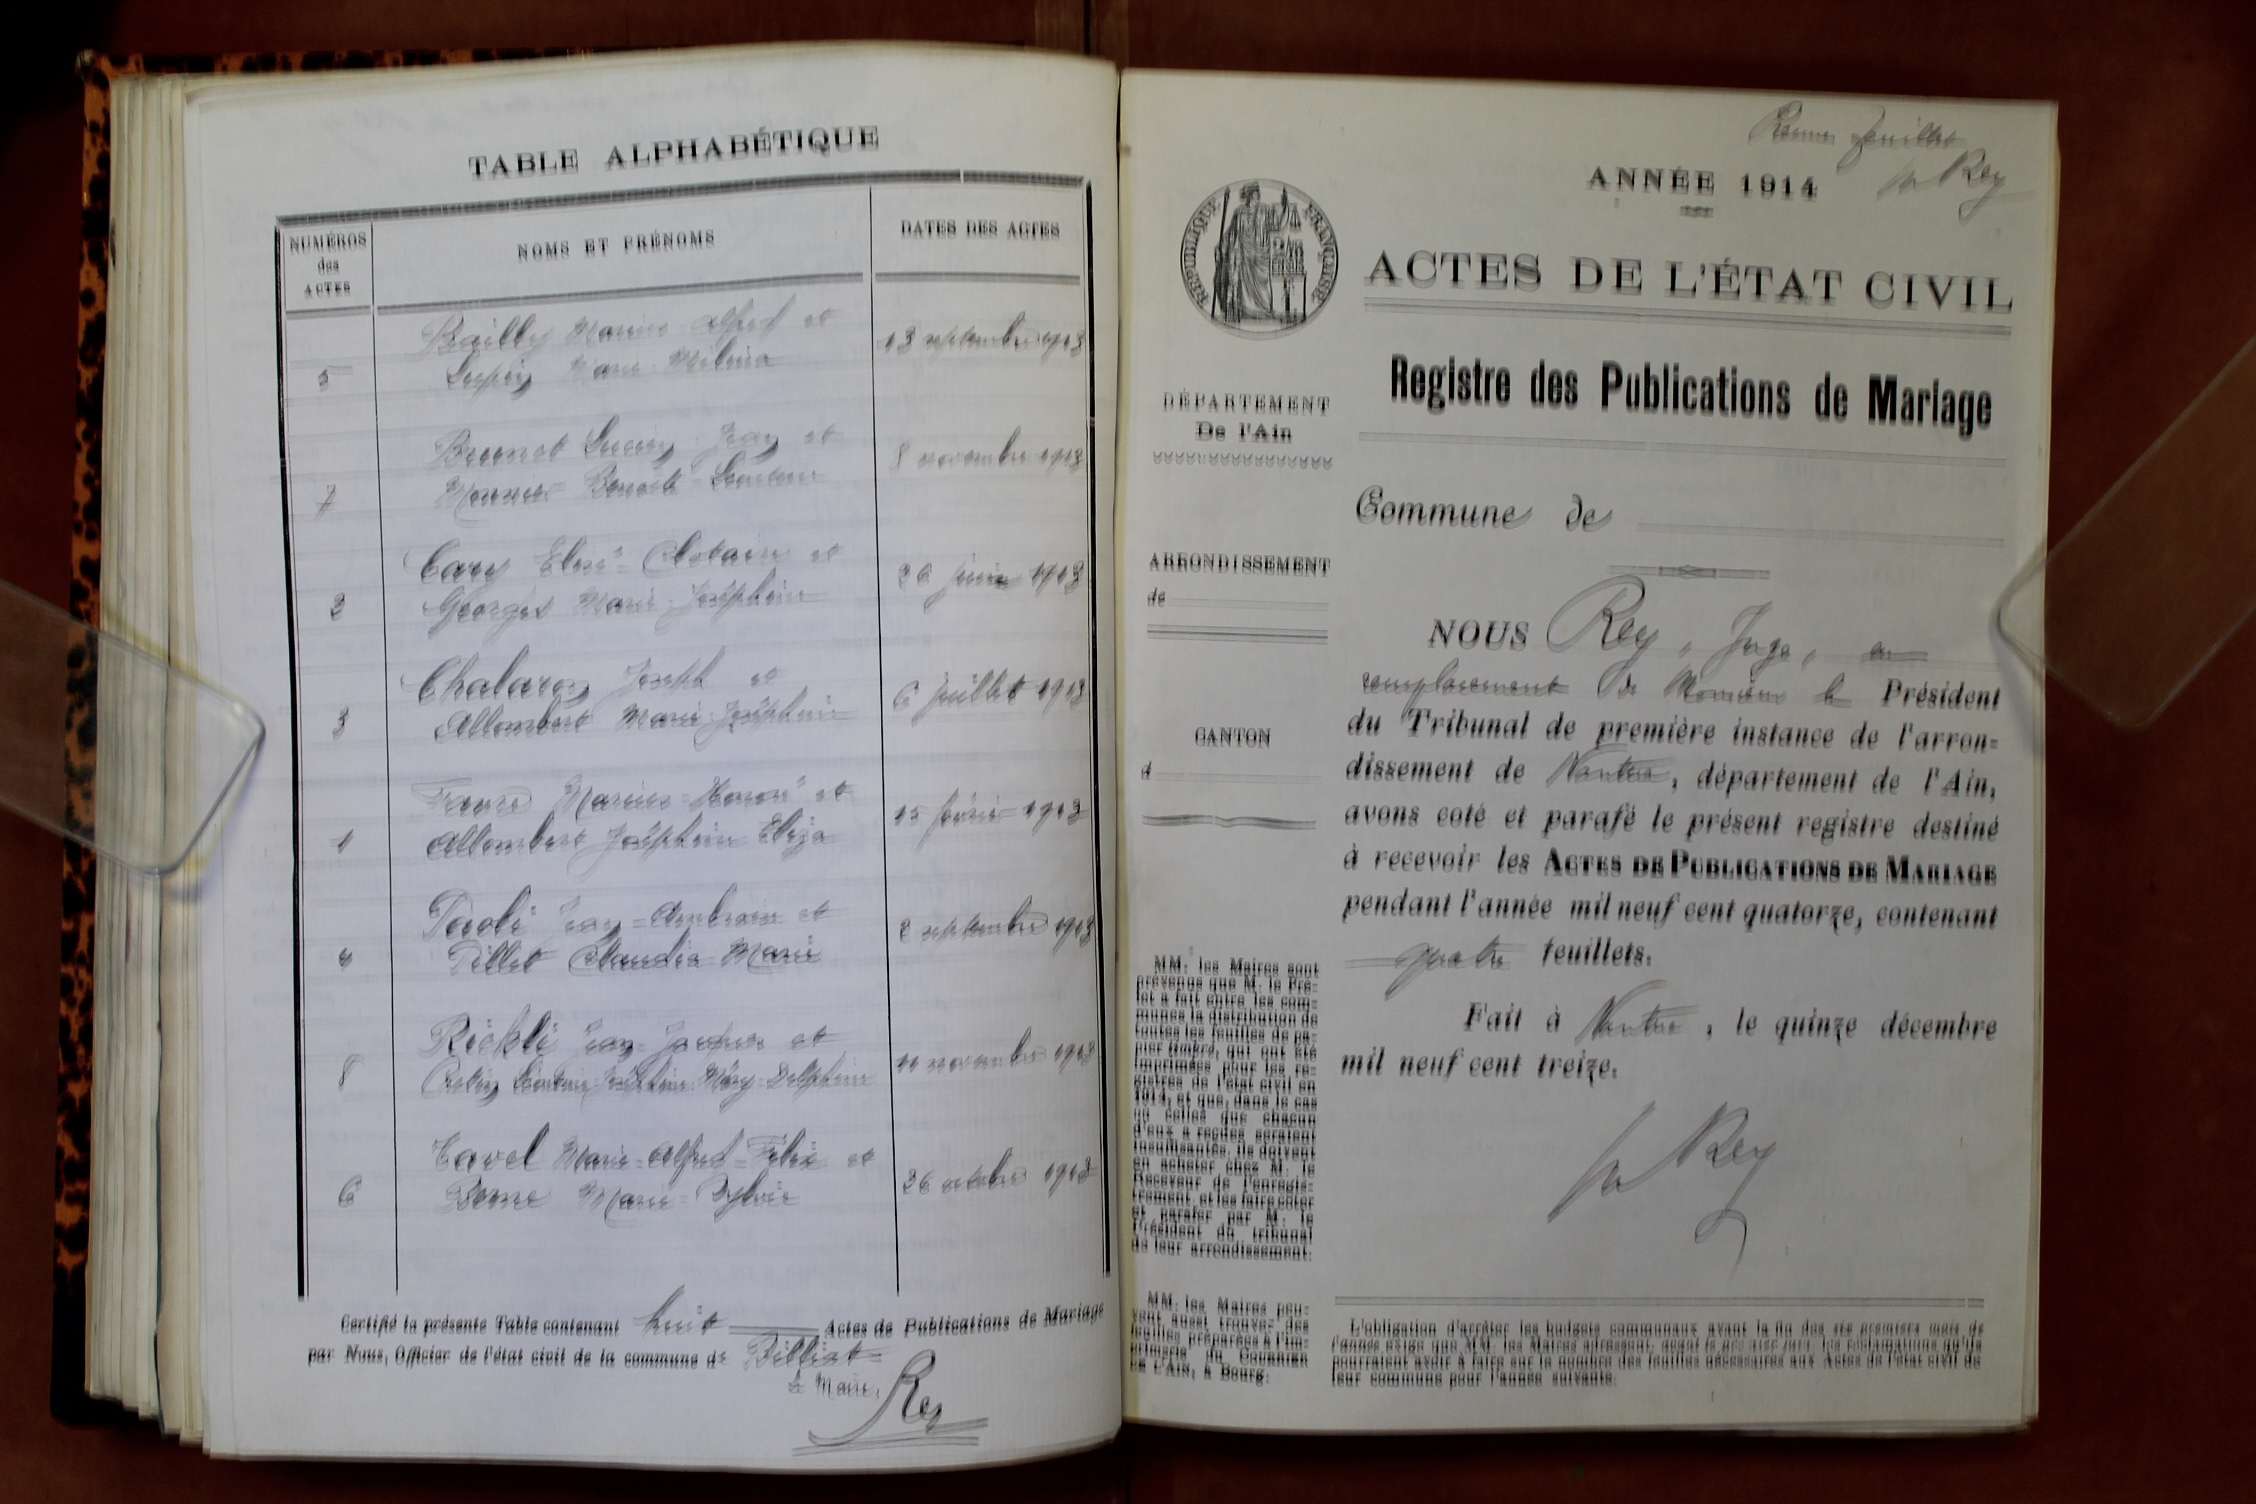 TABLE ALPHABÉTIQUE
NUMÉROS
des
ACTES
NOMS ET PRÉNOMS
DATES DES ACTES
Bailly Marius Alfred et
5
Marie
13 septembre 1913
Brunet Lucien Jean et
7
8 novembre 1913
Cary Clotaire et
2
Georges Marie Joséphine
26 juin 1913
Chalaron Joseph et
3
Allombert Marie Joséphine
6 juillet 1913
Favre Marius Honoré et
1
Allombert Joséphine Eliza
15 février 1913
Jean Ambroise et
4
Pillet Claudia Marie
2 septembre 1913
Rickli Jean Jacques et
8
Joséphine Mary Delphine
11 novembre 1913
Tavel Marie Alfred Félix et
6
Berne Marie Sylvie
26 octobre 1913
Certifié la présente Table contenant huit Actes de Publications de Mariage
par Nous, Officier de l'état civil de la commune de Billiat
Le Maire,
Rey
Premier feuillet
Rey
ANNÉE 1914
RÉPUBLIQUE FRANÇAISE
ACTES DE L'ÉTAT CIVIL
Registre des Publications de Mariage
DÉPARTEMENT
De l'Ain
Commune de
ARRONDISSEMENT
de
CANTON
d
NOUS Rey, Juge, en
remplacement de Monsieur le Président
du Tribunal de première instance de l'arron-
dissement de Nantua, département de l'Ain,
avons coté et parafé le présent registre destiné
à recevoir les ACTES DE PUBLICATIONS DE MARIAGE
pendant l'année mil neuf cent quatorze, contenant
quatre feuillets.
Fait à Nantua, le quinze décembre
mil neuf cent treize.
Rey
MM. les Maires sont
prévenus que M. le Pré-
fet a fait entre les com-
munes la distribution de
toutes les feuilles de pa-
pier timbré, qui ont été
imprimées pour les re-
gistres de l'état civil en
1914, et que, dans le cas
où celles que chacun
d'eux a reçues seraient
insuffisantes, ils doivent
en acheter chez M. le
Receveur de l'enregis-
trement, et les faire coter
et parafer par M. le
Président du tribunal
de leur arrondissement.
MM. les Maires peu-
vent aussi trouver des
feuilles préparées à l'im-
primerie du COURRIER
DE L'AIN, à Bourg.
L'obligation d'arrêter les budgets communaux avant la fin des six premiers mois de
l'année exige que MM. les Maires adressent, avant le les réclamations qu'ils
pourraient avoir à faire sur le nombre des feuilles nécessaires aux Actes de l'état civil de
leur commune pour l'année suivante.